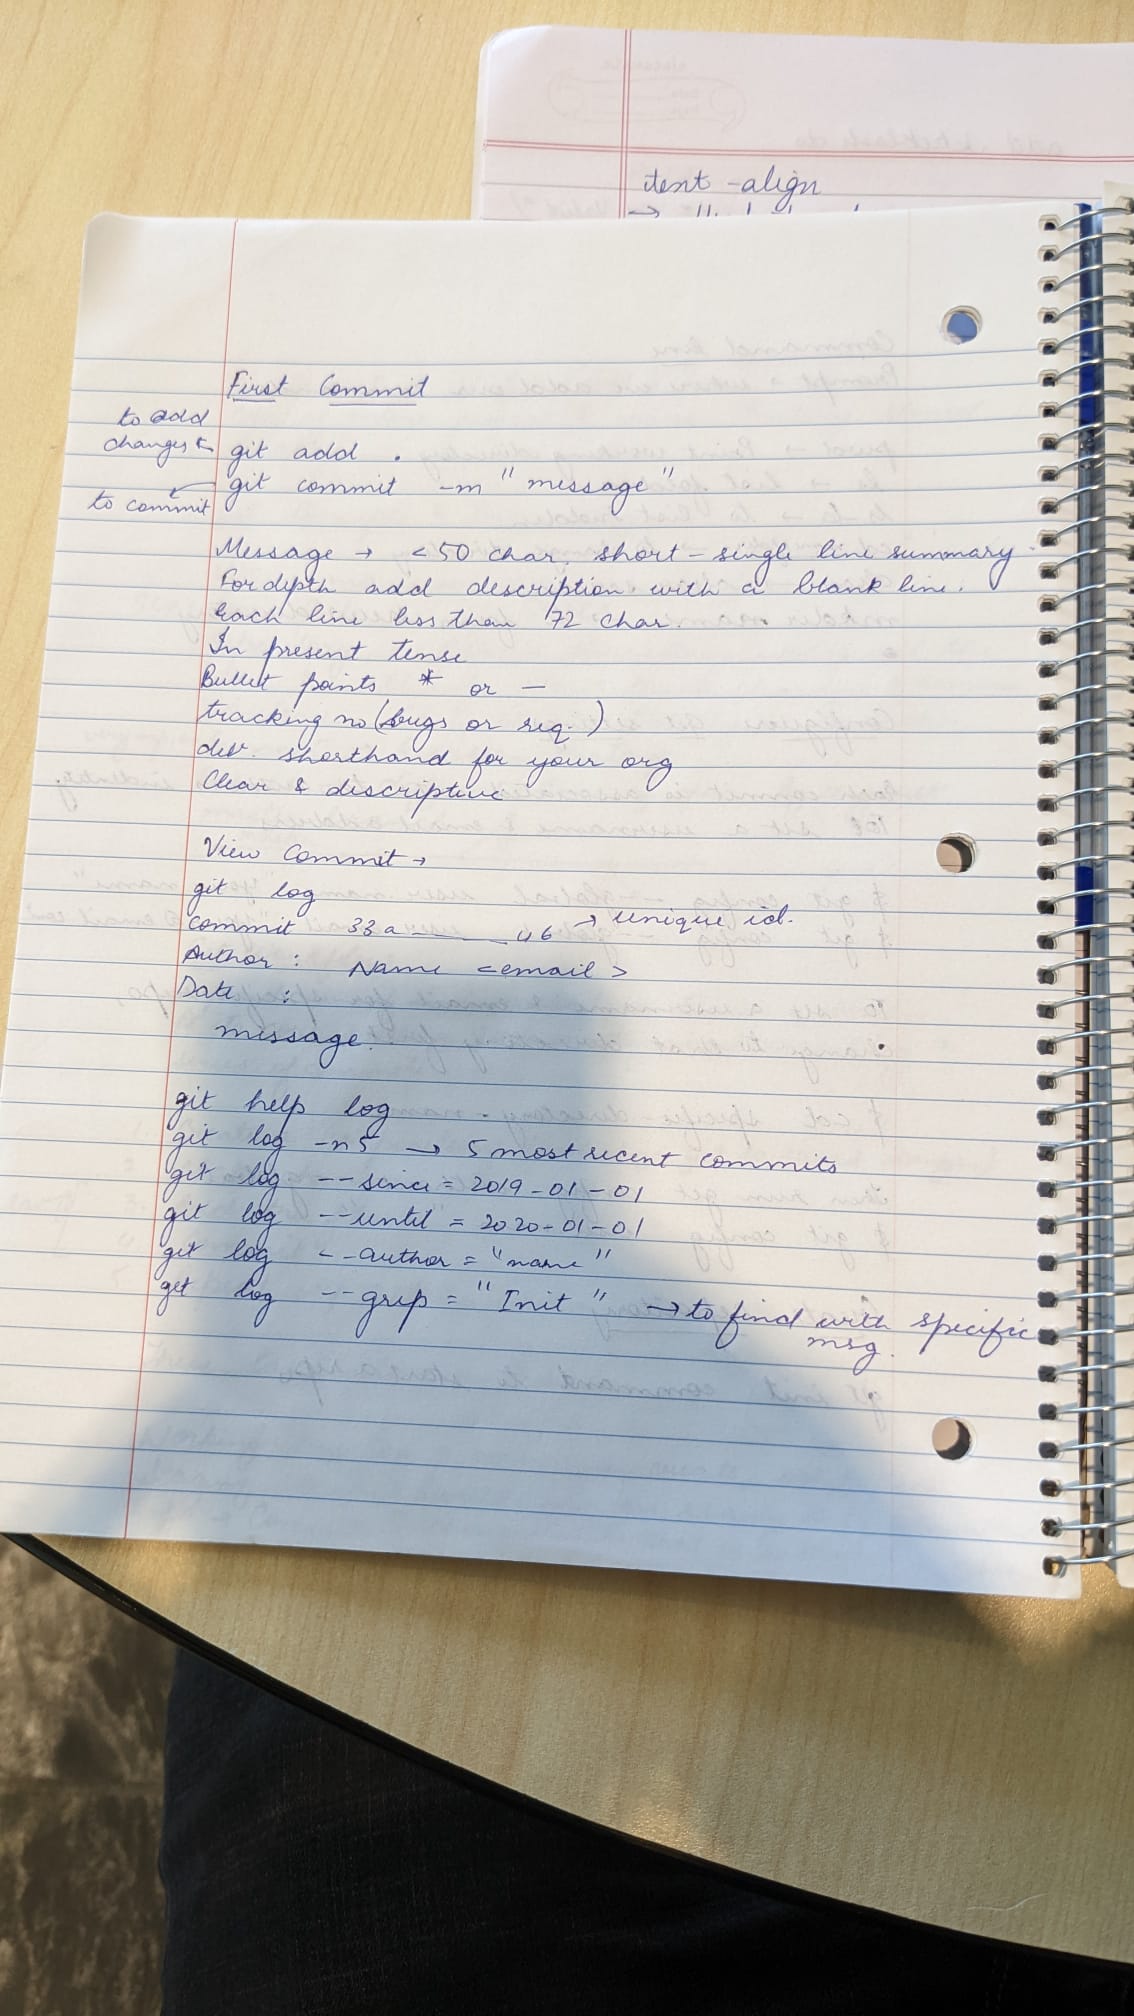 text-align
First Commit
to add
changes ←
git add .
git commit -m "message"
to commit
Message → <50 char. short - single line summary
For depth add description with a blank line.
Each line less than 72 char.
In present tense
Bullet points * or -
tracking no (bugs or req.)
dev. shorthand for your org
Clear & descriptive
View Commit →
git log
commit 33a______46 → unique id.
Author : Name <email>
Date :
message.
git help log
git log -n5 → 5 most recent commits
git log --since = 2019-01-01
git log --until = 2020-01-01
git log --author = "name"
git log --grep = "Init" → to find with specific
msg.